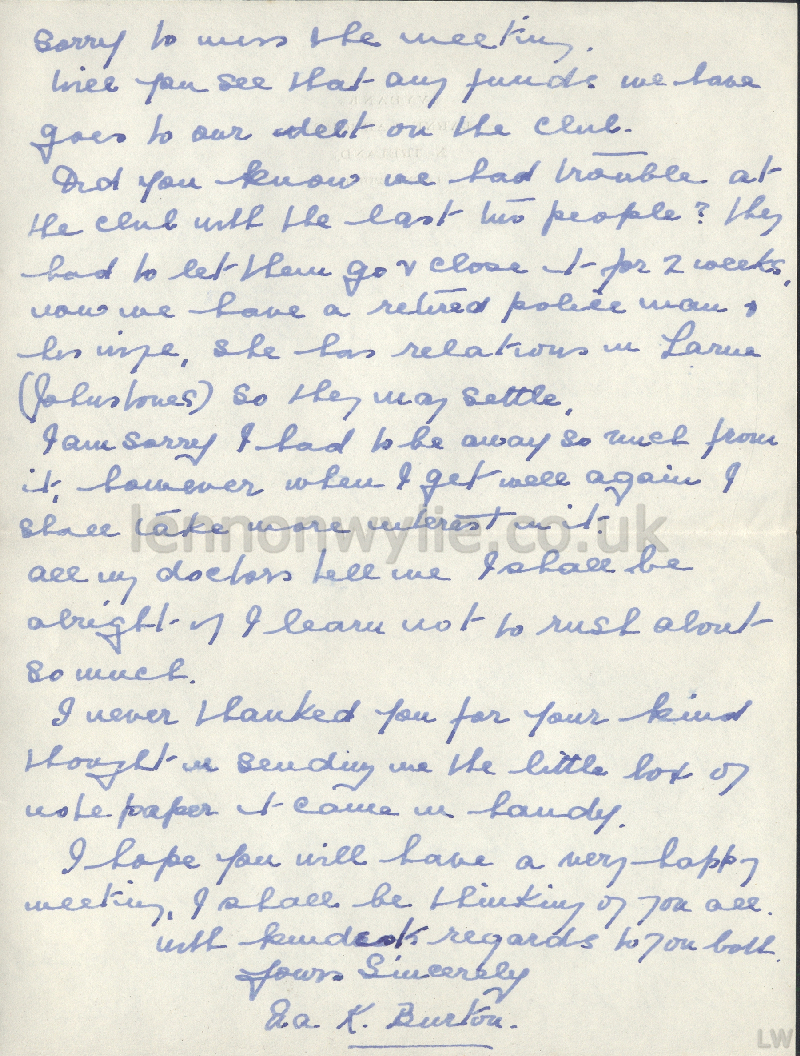 sorry to miss the meeting.
Will you see that any funds we have
goes to our debt on the club.
Did you know we had trouble at
the club with the last two people? they
had to let them go & close it for 2 weeks,
now we have a retired police man &
his wife, she has relations in Larne
(Johnstones) so they may settle,
I am sorry I had to be away so much from
it, however when I get well again I
shall take more interest in it.
lennonwylie.co.uk
all my doctors tell me I shall be
alright if I learn not to rush about
so much.
I never thanked you for your kind
thought in sending me the little box of
note paper it came in handy.
I hope you will have a very happy
meeting, I shall be thinking of you all.
with kindest regards to you both.
Yours Sincerely
K. Burton.
LW